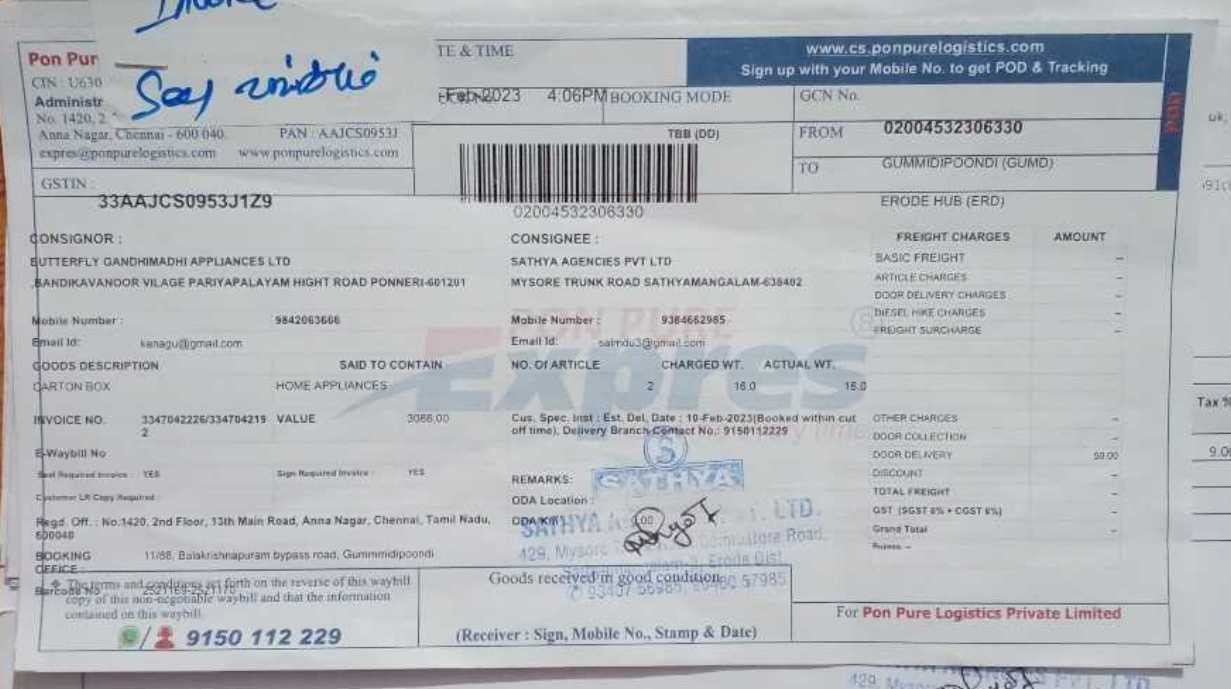 Invoice
Pon Pur
TE & TIME
www.cs.ponpurelogistics.com
Sign up with your Mobile No. to get POD & Tracking
CIN : U630
Administr
No. 1420, 2
Anna Nagar, Chennai - 600 040.
PAN : AAJCS0953J
expres@ponpurelogistics.com www.ponpurelogistics.com
GSTIN :
33AAJCS0953J1Z9
Feb-2023 4:06PM
BOOKING MODE
TBB (DD)
02004532306330
GCN No.
02004532306330
FROM
GUMMIDIPOONDI (GUMD)
TO
ERODE HUB (ERD)
POD
CONSIGNOR :
BUTTERFLY GANDHIMADHI APPLIANCES LTD
,BANDIKAVANOOR VILAGE PARIYAPALAYAM HIGHT ROAD PONNERI-601201
Mobile Number : 9842063666
Email Id: kanagu@gmail.com
CONSIGNEE :
SATHYA AGENCIES PVT LTD
MYSORE TRUNK ROAD SATHYAMANGALAM-638402
Mobile Number : 9384662985
Email Id: salmdu3@gmail.com
FREIGHT CHARGES AMOUNT
BASIC FREIGHT –
ARTICLE CHARGES –
DOOR DELIVERY CHARGES –
DIESEL HIKE CHARGES –
FREIGHT SURCHARGE –
PON PURE
Expres
GOODS DESCRIPTION SAID TO CONTAIN
CARTON BOX HOME APPLIANCES
NO. Of ARTICLE CHARGED WT. ACTUAL WT.
2 16.0 16.0
INVOICE NO. 3347042226/334704219 VALUE 3066.00
2
Cus. Spec. Inst : Est. Del. Date : 10-Feb-2023(Booked within cut
off time), Delivery Branch Contact No.: 9150112229
E-Waybill No
Seal Required Invoice : YES Sign Required Invoice : YES
Customer LR Copy Required :
REMARKS:
ODA Location :
ODA KM
OTHER CHARGES –
DOOR COLLECTION –
DOOR DELIVERY 50.00
DISCOUNT –
TOTAL FREIGHT –
GST (SGST 6% + CGST 6%) –
Grand Total –
Regd. Off. : No.1420, 2nd Floor, 13th Main Road, Anna Nagar, Chennai, Tamil Nadu,
600040
BOOKING OFFICE : 11/88, Balakrishnapuram bypass road, Gummmidipoondi
SATHYA
SATHYA LTD.
429, Mysore Road,
Erode Dist.
The terms and conditions set forth on the reverse of this waybill
copy of this non-negotiable waybill and that the information
contained on this waybill.
Barcode No 2521169-2521170
9150 112 229
Goods received in good condition
(Receiver : Sign, Mobile No., Stamp & Date)
For Pon Pure Logistics Private Limited
uk,
Tax %
9.0
429, Mysore